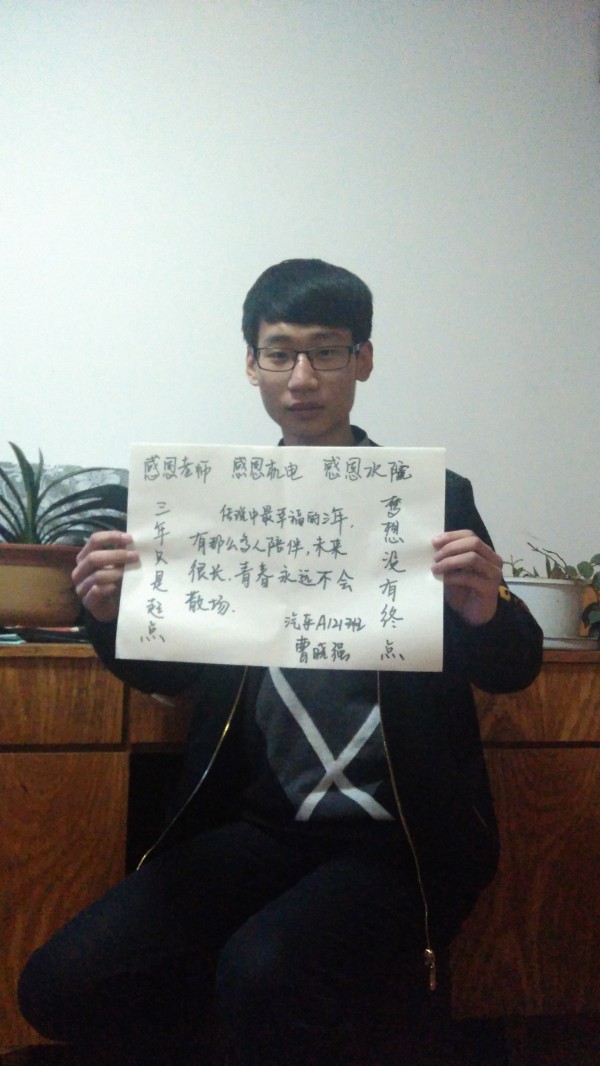 感恩老师 感恩机电 感恩水院
三年只是起点
传说中最幸福的三年,
有那么多人陪伴,未来
很长.青春永远不会
散场.
汽车A121班
曹晓强
梦想没有终点